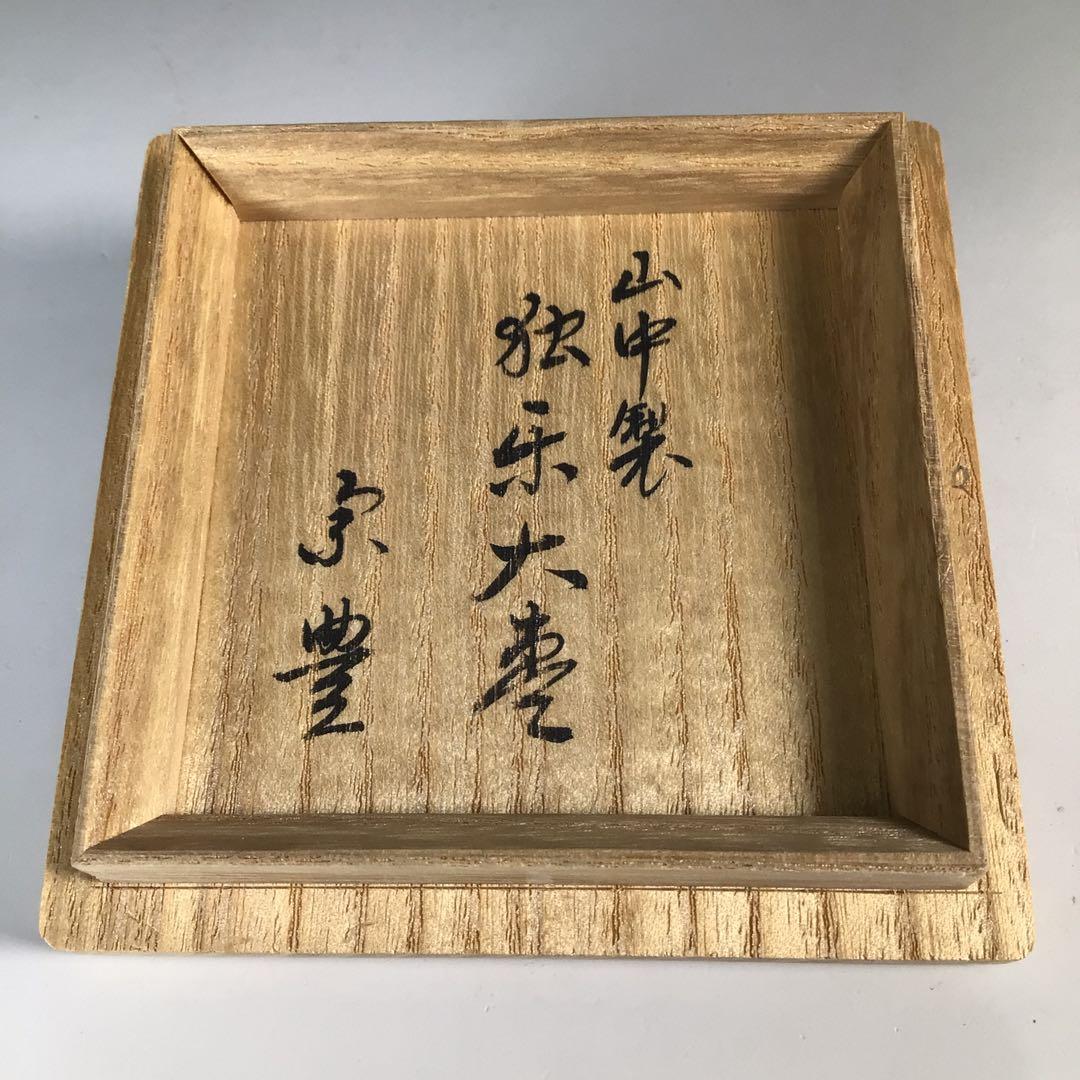 山中製
独楽大棗
宗豊